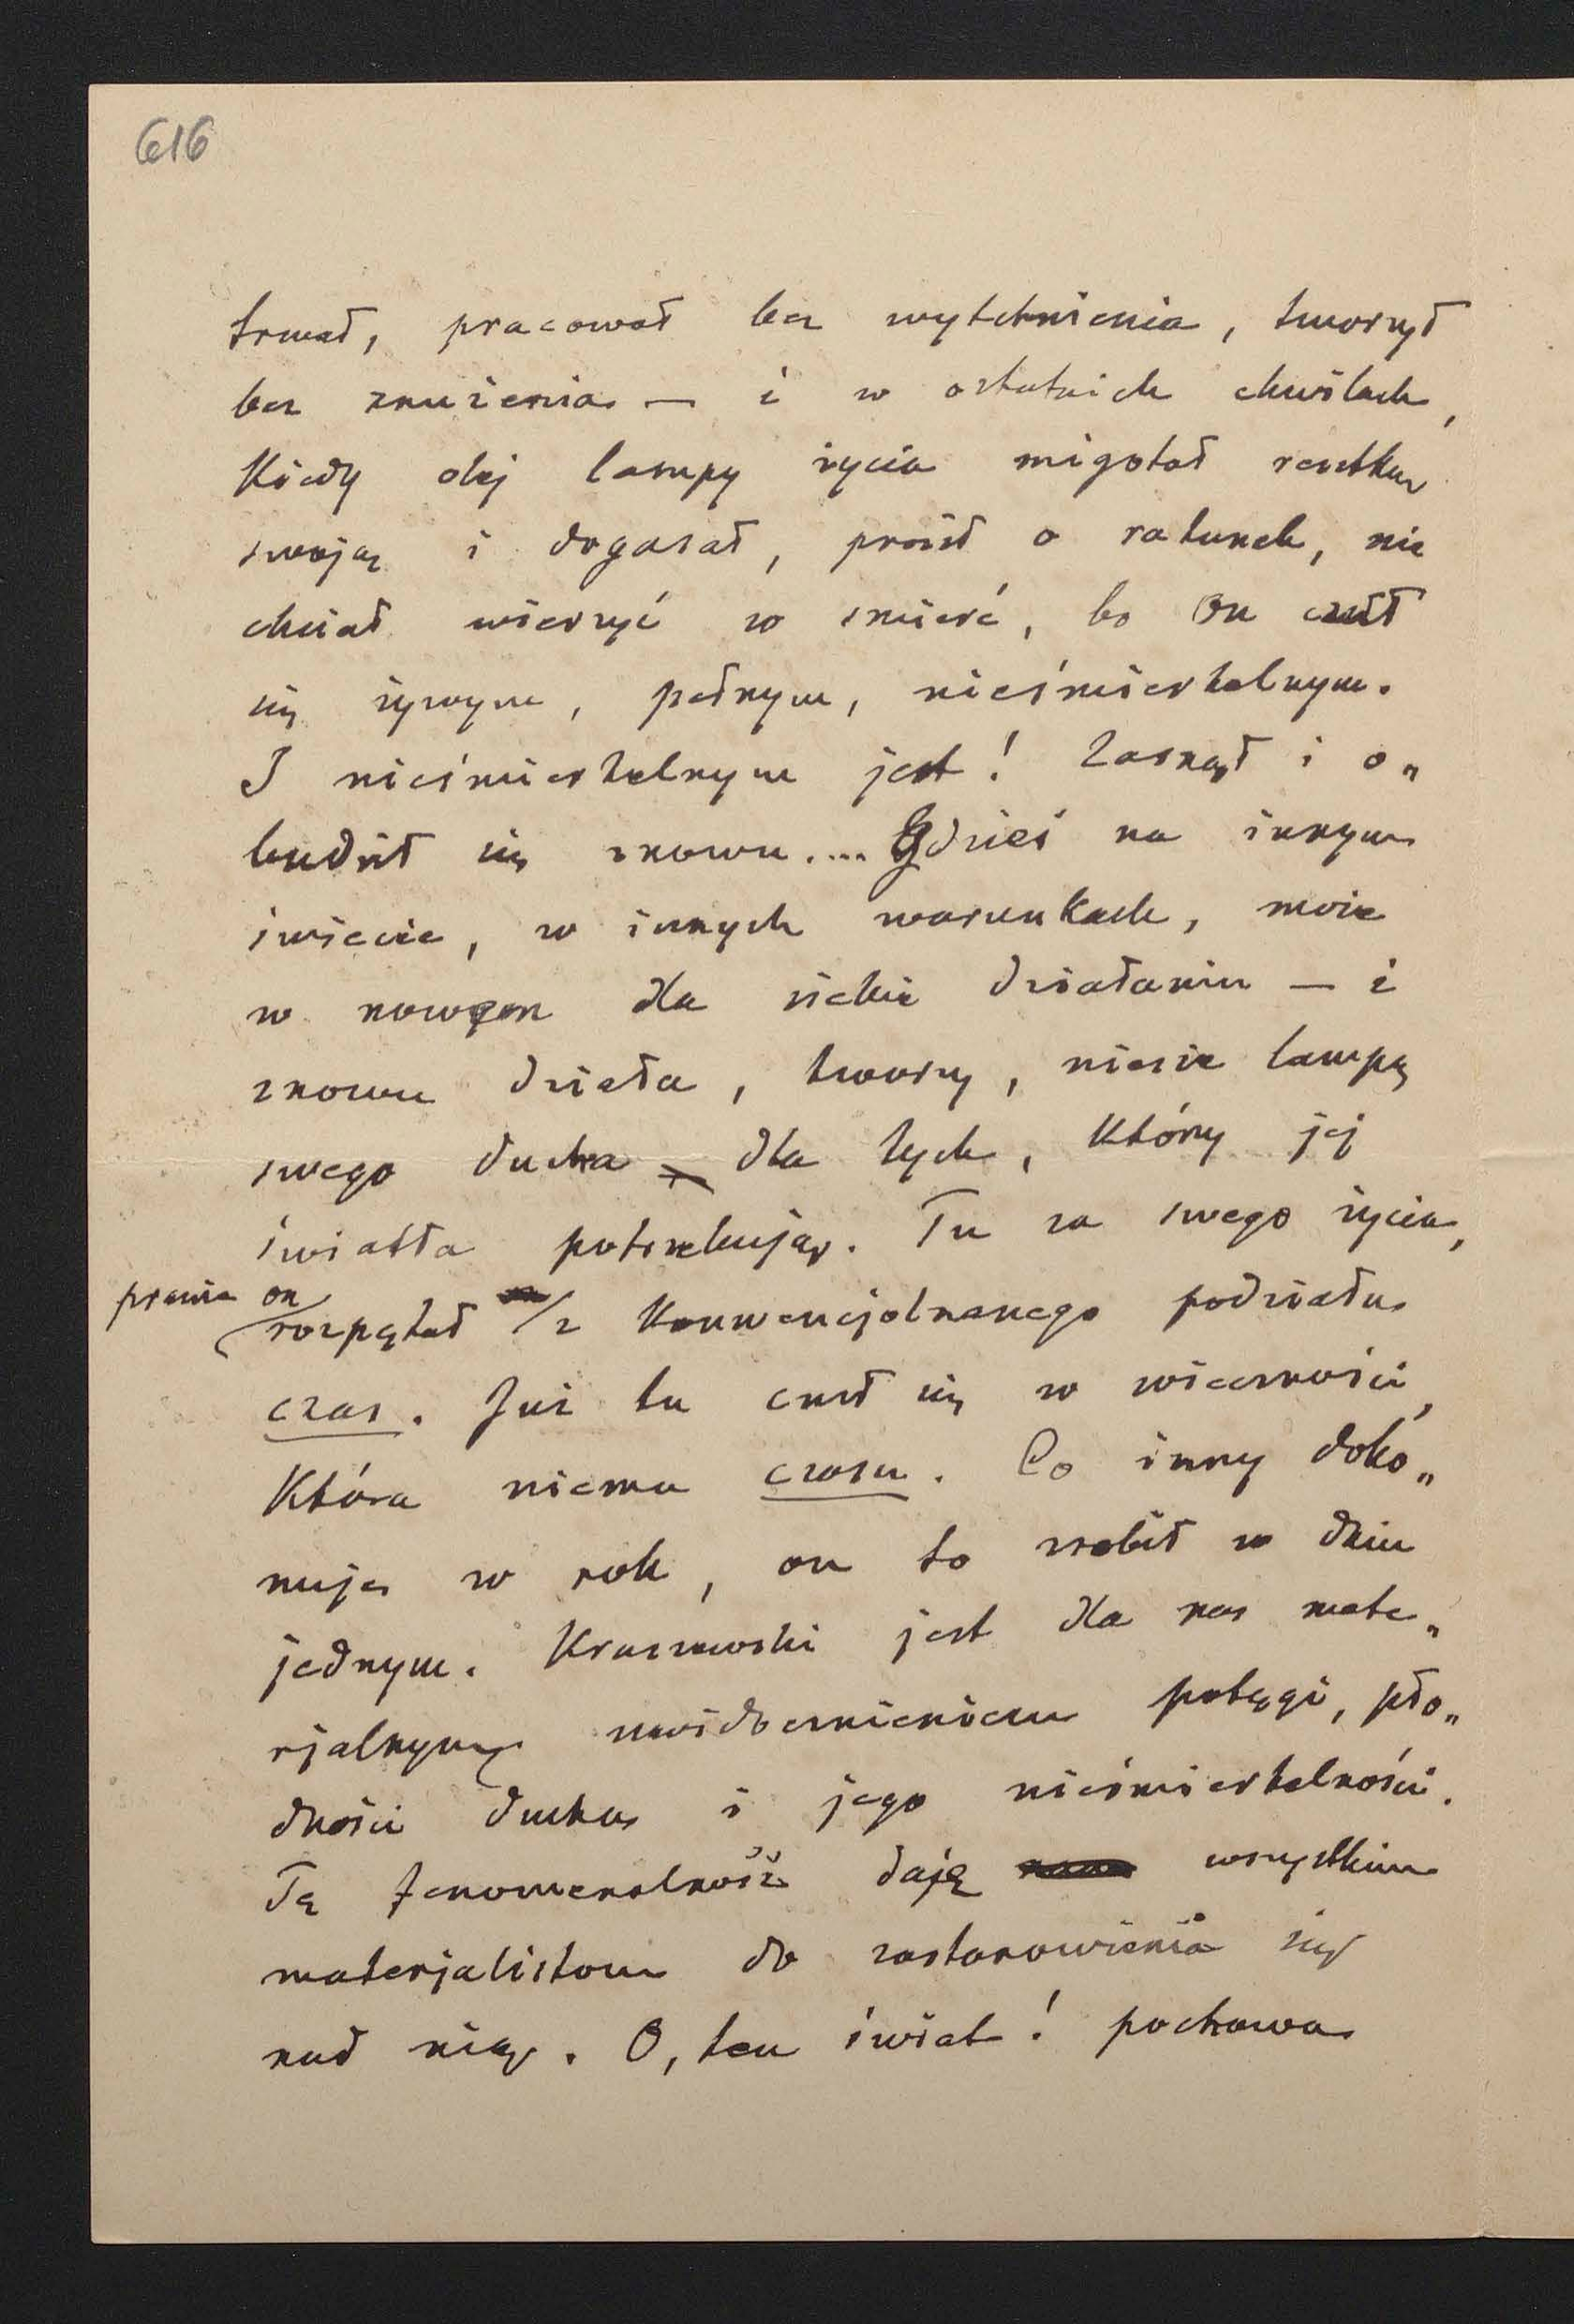 616
trwał, pracował bez wytchnienia, tworzył
bez znużenia — i w ostatnich chwilach,
kiedy olej lampy życia migotał resztką
swoją i dogasał, prosił o ratunek, nie
chciał wierzyć w śmierć, bo On czuł
się żywym, pełnym, nieśmiertelnym.
I nieśmiertelnym jest! Zasnął i o„
budził się znowu.... Gdzieś na innym
świecie, w innych warunkach, może
w nowem dla siebie działaniu — i
znowu działa, tworzy, niesie lampę
swego ducha dla tych, który jej
światła potrzebują. Tu za swego życia,
prawie on
rozpętał z konwencjolnanego podziału
czas. Już tu czuł się w wieczności,
która niema czasu. Co inny doko„
nuja w rok, on to zrobił w dniu
jednym. Kraszewski jest dla nas mate„
rjalnym uwidocznieniem potęgi, pło„
dności ducha i jego nieśmiertelności.
Tę fenomenalność daję wszystkim
materjalistom do zastanowienia się
nad nią. O, ten świat! pochowa